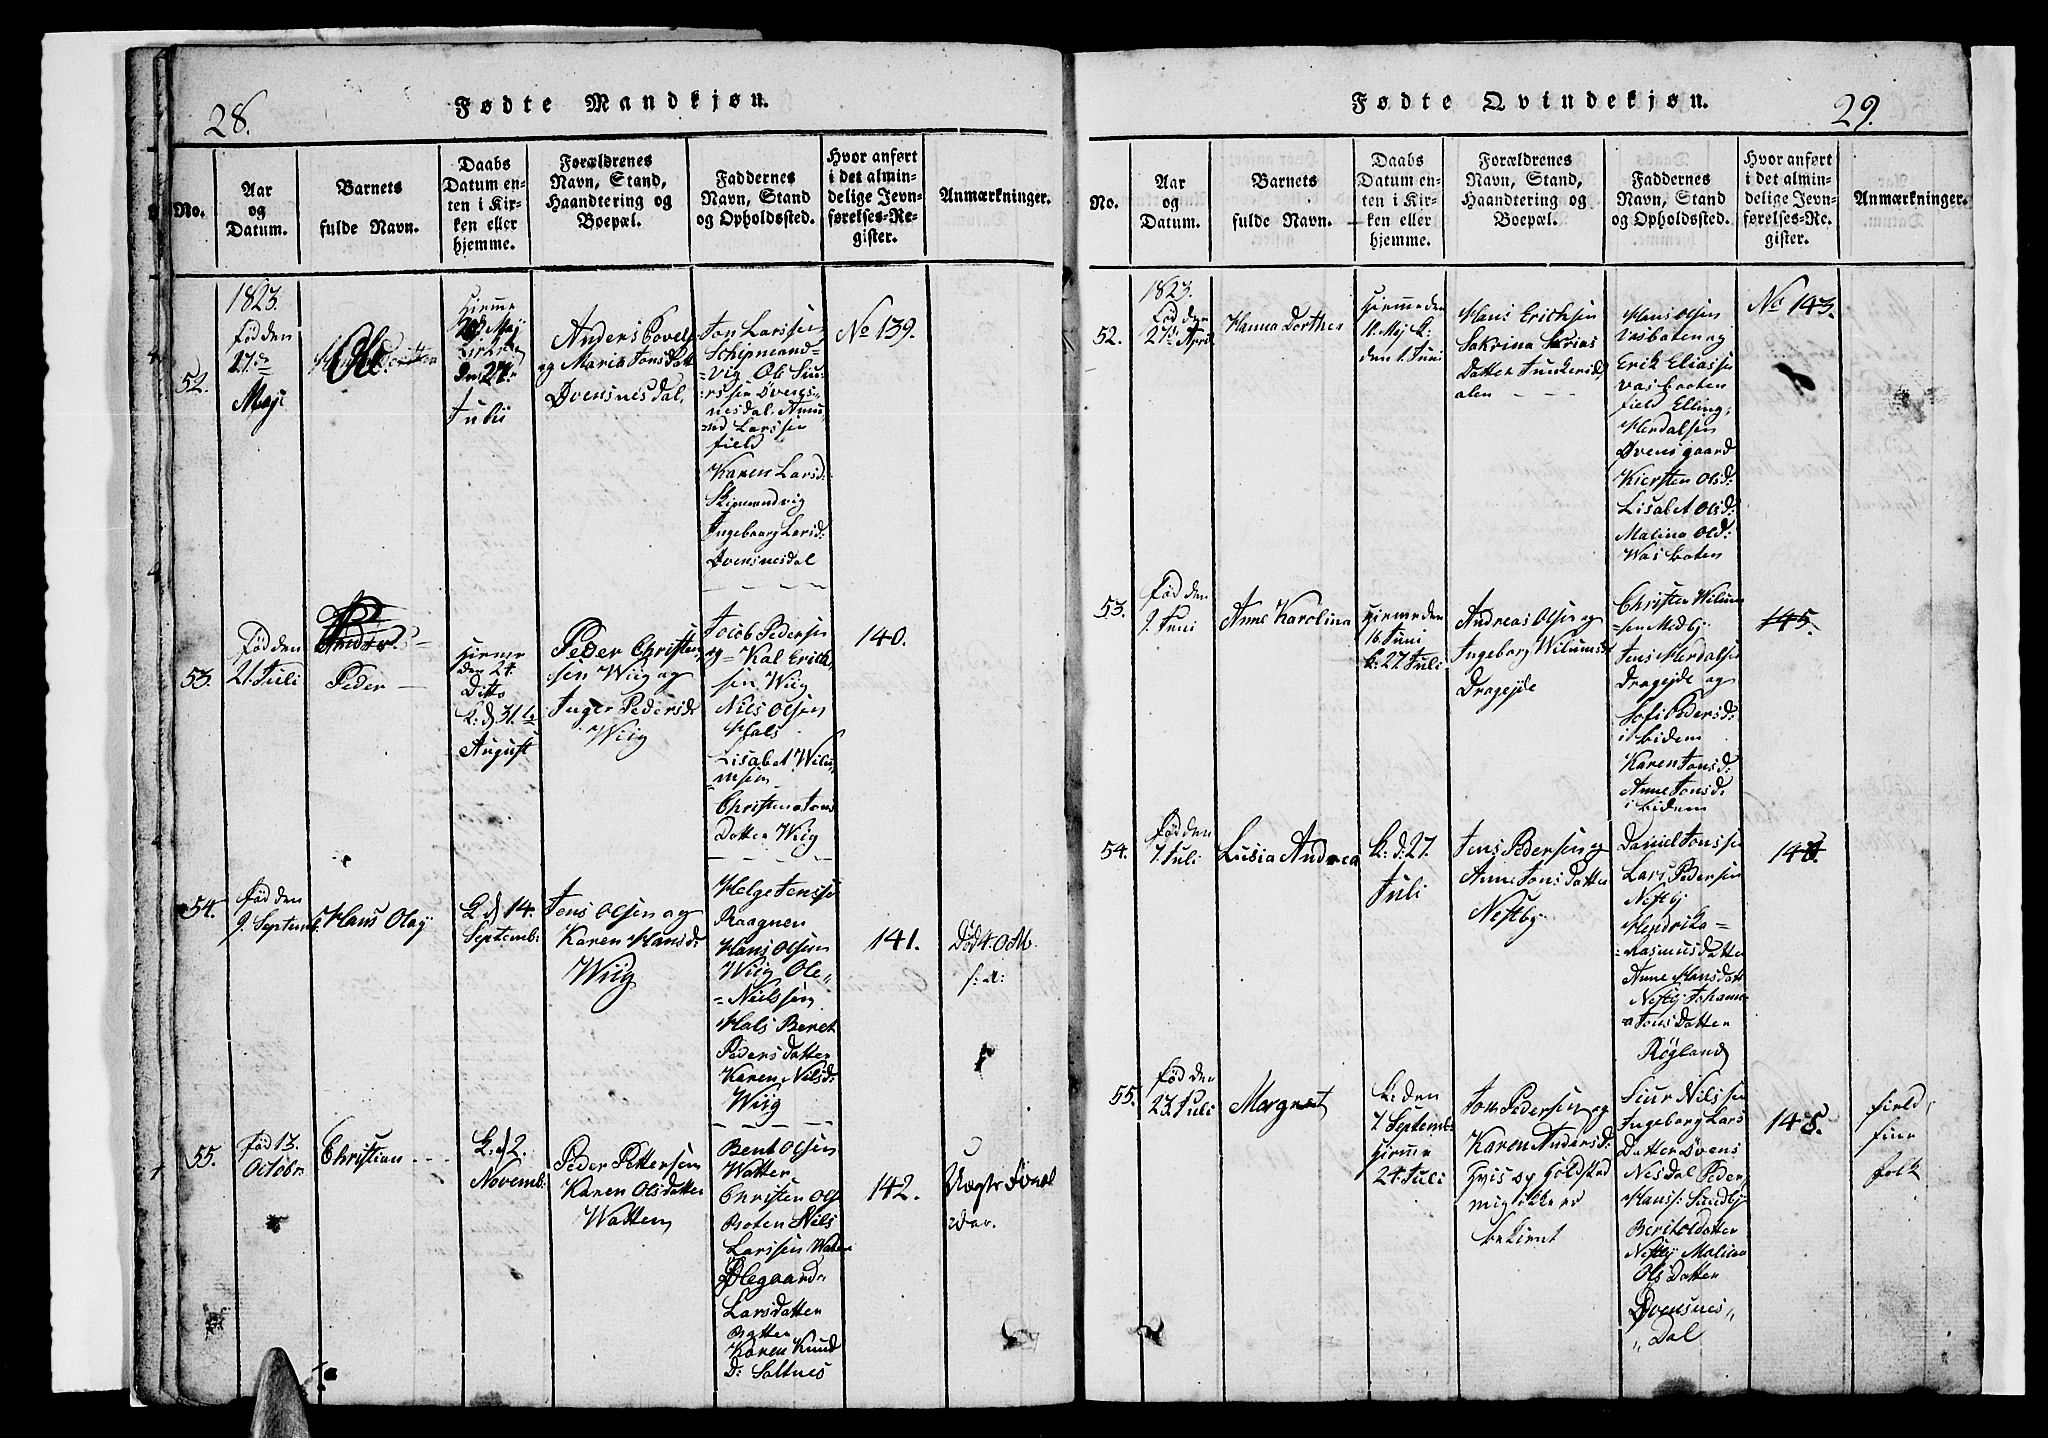 28.
Fødte Mandkjøn.
No.
Aar
og
Datum.
Barnets
fulde Navn.
Daabs
Datum en-
ten i Kir-
ken eller
hjemme.
Forældrenes
Navn, Stand,
Haandtering og
Boepæl.
Faddernes
Navn, Stand
og Opholdssted.
Hvor anført
i det almin-
delige Jevn-
førelses-Re-
gister.
Anmærkninger.
52.
1823.
fød den
27de
Maji
Ole
Hieme
Maij
Kirken
den 27de
Julii
Anders Povels
og Maria Jons Dat
Svensnesdal,
Jon Larssen
Schipmand-
=vig Ole Siu-
rssen Svens,,
nesdal, Amu,,
nd Larssen
field
Karen Larsd:
Skipmandvig
Ingeboarg Larsd:
Svensnesdal
No 139.
53.
fød den
21 Juli
Peder —
Hieme
den 24.
Ditto
K: d 31te
August
Peder Christen,,
sen Wiig og
Inger Pedersd:
Wiig
Jacob Pedersen
og = Kal Erich,,
sen Wiig
Nils Olsen
Hals
Lisabet Wilu,,
msen
Christena Jons
Datter Wiig
140.
54.
fød den
9. Septemb.
Hans Olay
K. d 14.
Septemb:
Jens Olsen og
Karen Hansd:
Wiig
Helge Jenssen
Raagnen
Hans Olsen
Wiig Ole,,
=Nielssen
Hals Beret
Peders Datter
Karen Nilsd:
Wiig
141.
Død 4. O. M.
s: a:
55.
fød 13.
Octobr.
Christian - - -
K. d 2.
Novemb:
Peder Pettersen
Karen Olsdatter
Watten
Bent Olsen
Watten
Christen Ols
Boten Nils
Larssen Waten
Olegaard
Larsdatter
Batten
Karen Knud
D: Saltnes
142.
29.
Fødte Qvindekjøn.
No.
Aar
og
Datum.
Barnets
fulde Navn.
Daabs
Datum en-
ten i Kir-
ken eller
hjemme.
Forældrenes
Navn, Stand,
Haandtering og
Boepæl.
Faddernes
Navn, Stand
og Opholdssted.
Hvor anført
i det almin-
delige Jevn-
førelses-Re-
gister.
Anmærkninger.
52.
1823.
Fød den
27de April
Hanna Dorthea
Hieme den
11. Mej K:
den 1. Juni
Hans Erichsen
Sakrina Sarias
Datter Junkerid,,
alen - - -
Hans Olsen
Vasboten og
Erik Eliassen
Vasbaaten
field Elling,,
Herdalsen
Svensgaard
Kiersten Olsd:
Lisabet Olsd:
Malina Olsd:
Wasbaten
No 143.
53.
fød den
9. Juni
Anne Karolina
Hieme den
16 Juni
K: 27 Juli
Andreas Olsen og
Ingeborg Wilumsd:
Drageide
Christen Wilum
=sen Medby
Jens Herdalsen
Drageide og
Sofi Pedersd:
ibidem
Karen Jonsd:
Anne Jonsd:
ibidem
145.
54.
fød den
7. Juli
Lusia Andrea
K: d: 27.
Juli
Jens Pedersen og
Anne Jons datter
Nestby
Daniel Jonssen
Lars Pedersen
Nestby
Hendrika=
=Rasmusdatter
Anne Hansdatt
Nestby Johann,,
a Jons Datter
Røgland
55.
fød den
23. Juli
Margret
K: den
7 Septemb.
Hieme
24. Juli
Jon Pedersen og
Karen Andersd:
Hvis og Goldstad
mig ikke er
bekient
Siur Nilssen
Ingeborg Lars
Datter Svens
Nesdal Peder,,
Hanss: Sundby
Berit oldatter
Nestby Malina
Ols Datter
Svensnes,,
,,Dal
145.
field,,
finn
folk